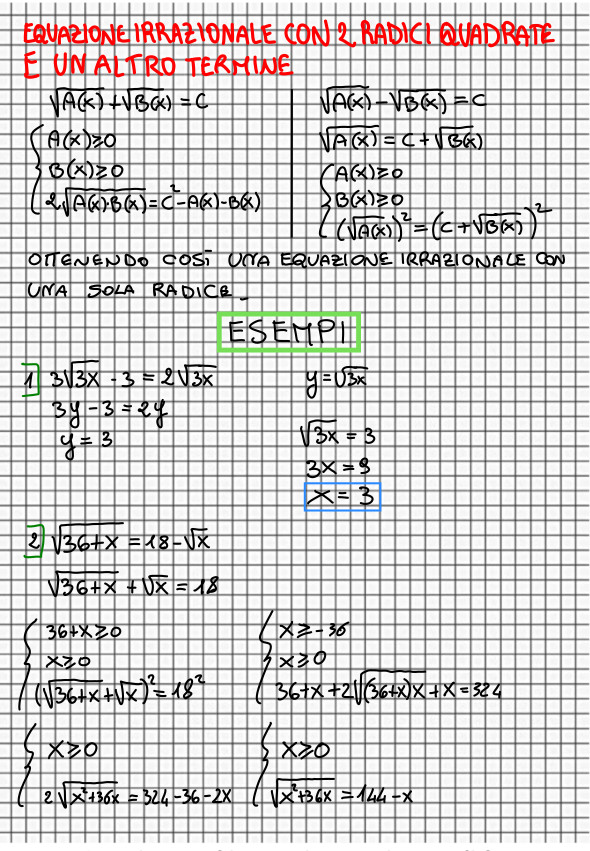 EQUAZIONE IRRAZIONALE CON 2 RADICI QUADRATE
E UN ALTRO TERMINE
√A(x) + √B(x) = C
{ A(x) ≥ 0
B(x) ≥ 0
2√A(x)·B(x) = C² - A(x) - B(x)
√A(x) - √B(x) = C
√A(x) = C + √B(x)
{ A(x) ≥ 0
B(x) ≥ 0
(√A(x))² = (C + √B(x))²
OTTENENDO COSÌ UNA EQUAZIONE IRRAZIONALE CON
UNA SOLA RADICE.
ESEMPI
1] 3√3x - 3 = 2√3x
3y - 3 = 2y
y = 3
y = √3x
√3x = 3
3x = 9
x = 3
2] √36+x = 18 - √x
√36+x + √x = 18
{ 36+x ≥ 0
x ≥ 0
(√36+x + √x)² = 18²
{ x ≥ -36
x ≥ 0
36+x+2√(36+x)x + x = 324
{ x ≥ 0
2√x²+36x = 324-36-2x
{ x ≥ 0
√x²+36x = 144-x